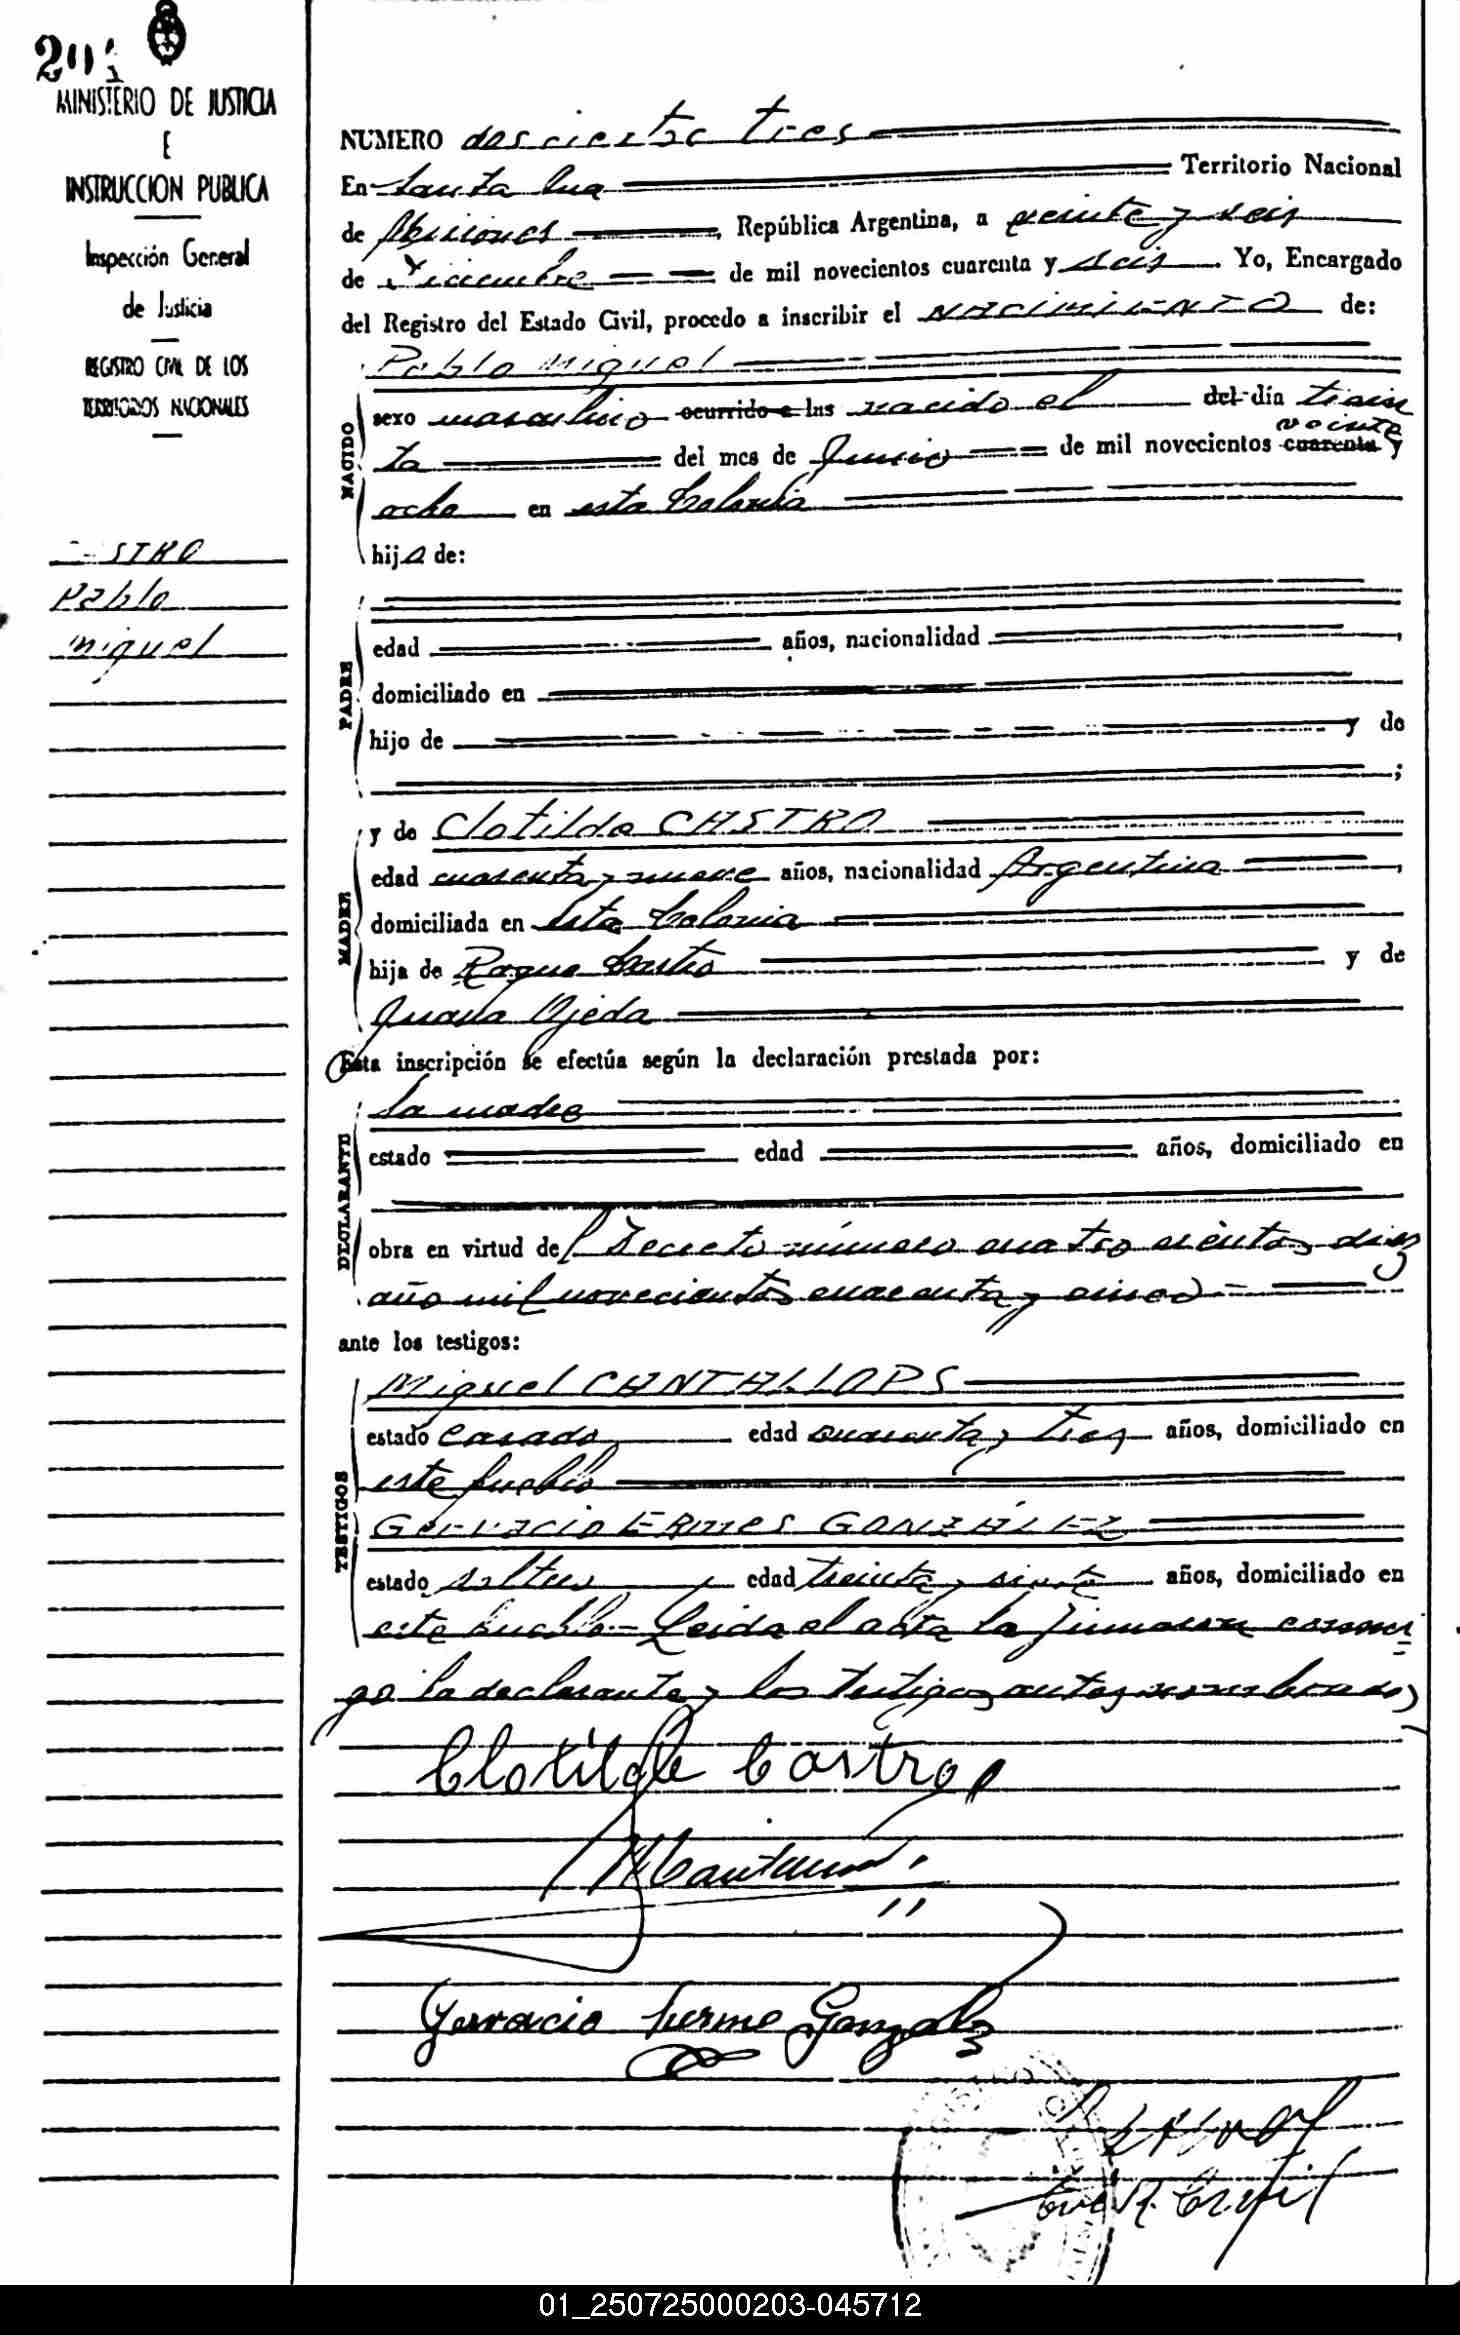 203
MINISTERIO DE JUSTICIA
E
INSTRUCCION PUBLICA
Inspección General
de Justicia
REGISTRO CIVIL DE LOS
TERRITORIOS NACIONALES
STRO
Pablo
Miguel
NUMERO doscientos tres
En Santa Ana Territorio Nacional
de Misiones, República Argentina, a veinte y seis
de Diciembre de mil novecientos cuarenta y seis. Yo, Encargado
del Registro del Estado Civil, procedo a inscribir el NACIMIENTO de:
NACIDO
Pablo Miguel
sexo masculino ocurrido a las nacido el del día trein
ta del mes de Junio de mil novecientos cuarenta veinte y
ocho en esta Colonia
hijo de:
PADRE
edad años, nacionalidad ,
domiciliado en
hijo de y de
;
MADRE
y de Clotilde CASTRO
edad cuarenta y nueve años, nacionalidad Argentina,
domiciliada en esta Colonia
hija de Roque Castro y de
Juana Ojeda
Esta inscripción se efectúa según la declaración prestada por:
DECLARANTE
la madre
estado edad años, domiciliado en
obra en virtud del Decreto número cuatro cientos diez
año mil novecientos cuarenta y cinco
ante los testigos:
TESTIGOS
Miguel CANTALLOPS
estado casado edad cuarenta y tres años, domiciliado en
este pueblo
Gervacio ERMES GONZÁLEZ
estado soltero edad treinta y siete años, domiciliado en
este pueblo - Leida el acta la firmaron conmi
go la declarante y los testigos antes nombrados
Clotilde Castro
Gervacio Germe Gonzalz
01_250725000203-045712